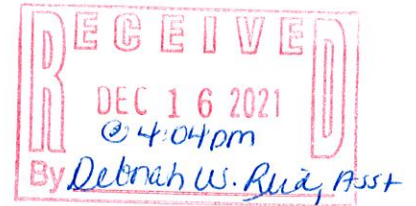 RECEIVED
DEC 16 2021
@ 4:04pm
By Deborah W. Reid, Asst